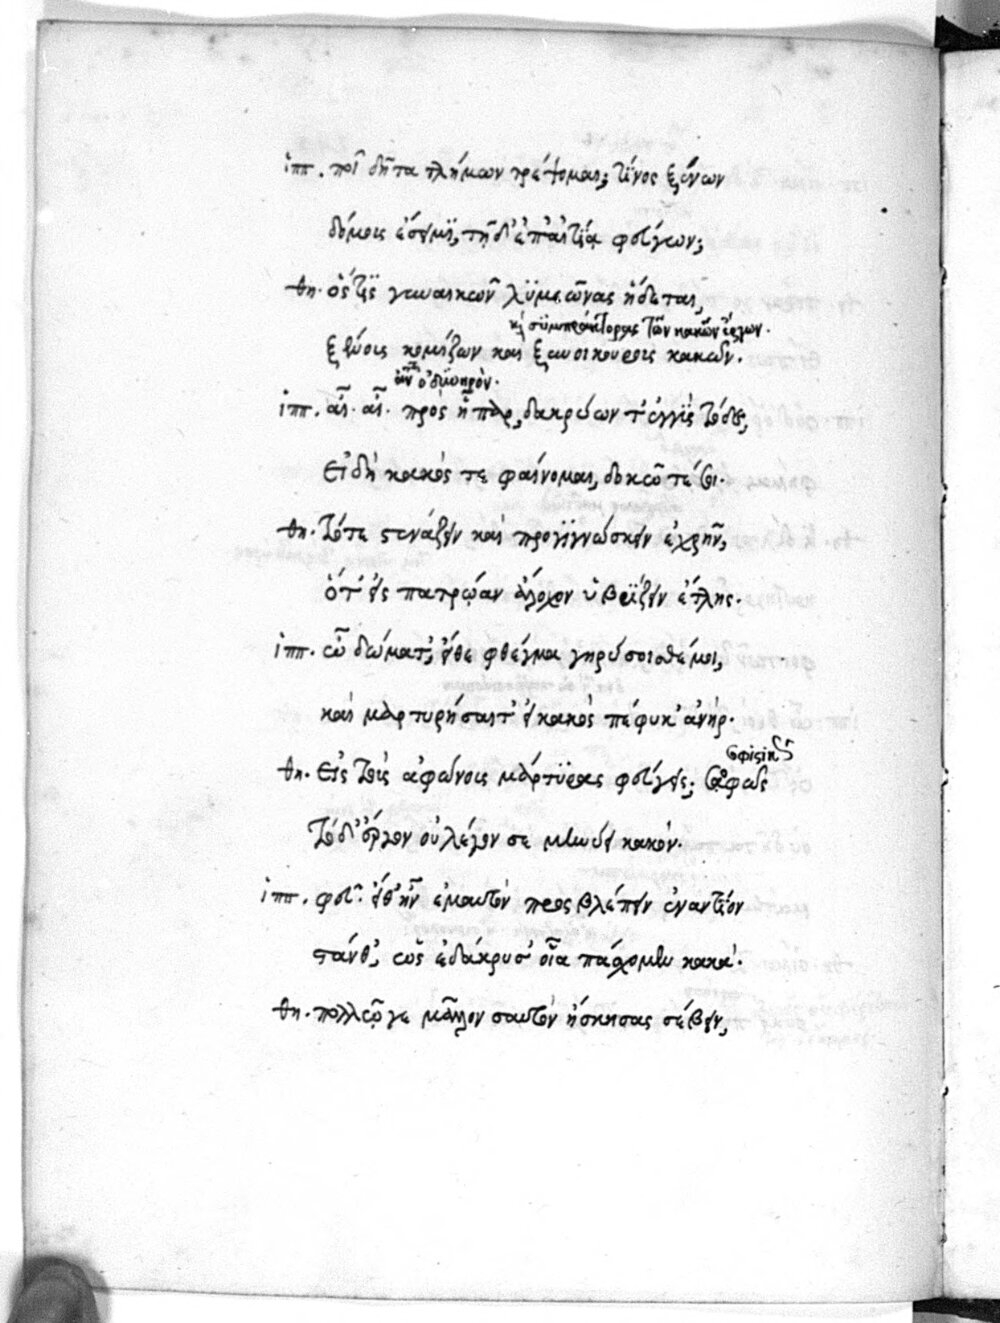 ἱππ. ποῖ δῆτα τλήμων τρέψομαι; τίνος ξένων
δόμοις ἔσειμι, τῇδ' ἐπ' αἰτίᾳ φεύγων;
θη. ὅστις γυναικῶν λυμεῶνας ἥδεται,
κỳ συμπράκτορας τῶν κακῶν ἔργων.
ξένους κομίζων καὶ ξυνοικούρους κακῶν.
ὀδυνηρὸν.
ἱππ. αἶ. αἶ. πρὸς ἧπαρ, δακρύων τ' ἐγγὺς τόδε,
Εἰ δὴ κακός τε φαίνομαι, δοκῶ τέ σοι.
θη. τότε στενάζειν καὶ προγιγνώσκειν ἐχρῆν,
ὅτ' εἰς πατρῴαν ἄλοχον ὑβρίζειν ἔτλης.
ἱππ. ὦ δώματ', εἴθε φθέγμα γηρύσοισθέ μοι,
καὶ μαρτυρήσαιτ' εἰ κακὸς πέφυκ' ἀνήρ.
θη. Εἰς τοὺς ἀφώνους μάρτυρας φεύγεις; σαφῶς
τόδ' ἔργον οὐ λέγον σε μηνύει κακόν.
ἱππ. φεῦ. εἴθ' ἦν ἐμαυτὸν προσβλέπειν ἐναντίον
στάνθ', ὡς ἐδάκρυσ' οἷα πάσχομεν κακά.
θη. πολλῷ γε μᾶλλον σαυτὸν ἤσκησας σέβειν,